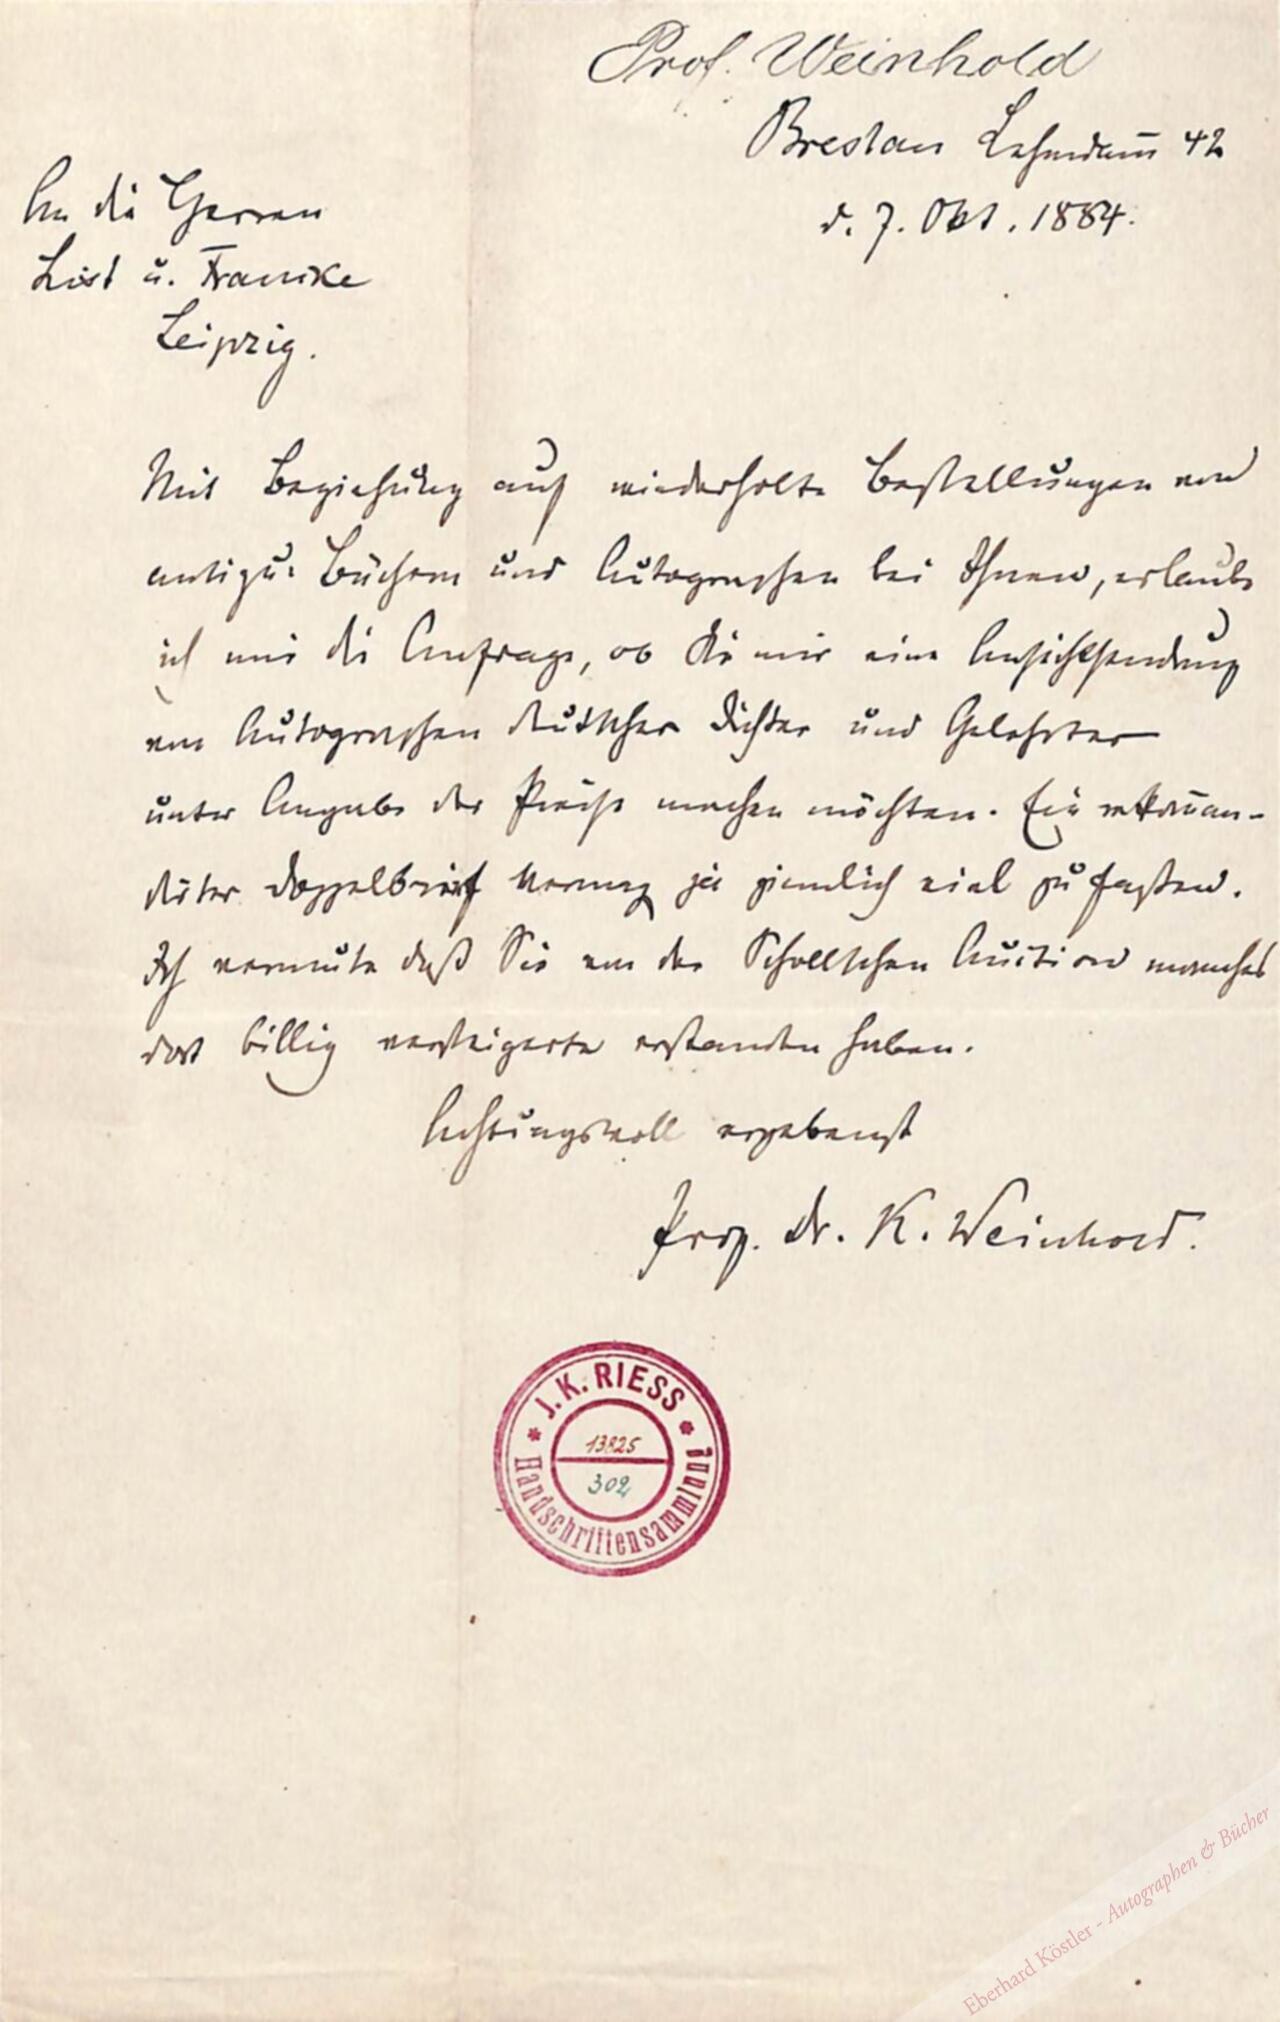 Prof. Weinhold
Breslau Lehmdam̅ 42
d. 7. Okt. 1884.
An die Herren
List u. Francke
Leipzig.
Mit Beziehung auf wiederholte Bestellungen von
antiqu. Büchern und Autographen bei Ihnen, erlaube
ich mir die Anfrage, ob Sie mir eine Ansichtsendung
von Autographen deutscher Dichter und Gelehrter
unter Angabe der Preise machen möchten. Ein rekom̅an-
dirter Doppelbrief vermag ja ziemlich viel zu fassen.
Ich vermute daß Sie von der Schollschen Auction manches
dort billig versteigerte erstanden haben.
Achtungsvoll ergebenst
Prof. Dr. K. Weinhold.
* J. K. RIESS *
13825
302
Handschriftensammlung
Eberhard Köstler - Autographen & Bücher